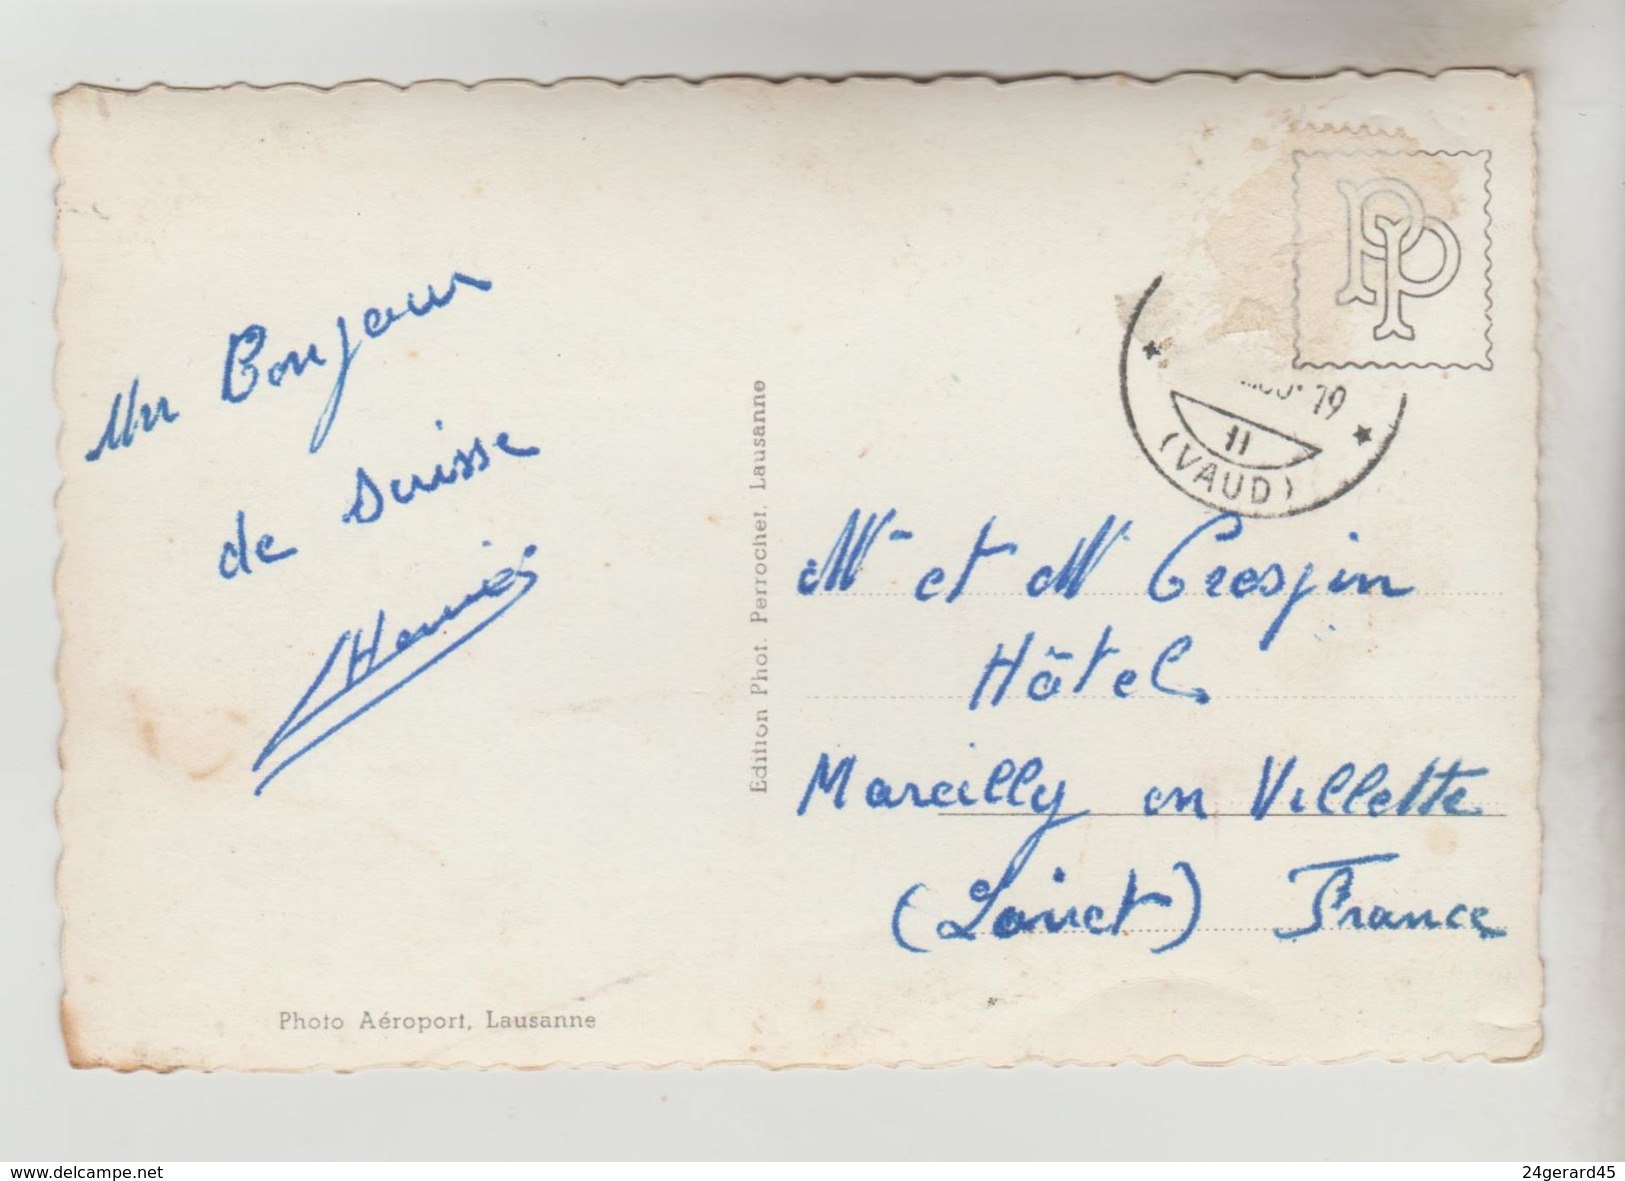 Un Bonjour
de Suisse
Photo Aéroport, Lausanne
Edition Phot. Perrochet, Lausanne
PP
19
II
(VAUD)
Mr et Me Crespin
Hôtel
Marcilly en Villette
(Loiret) France
www.delcampe.net
24gerard45